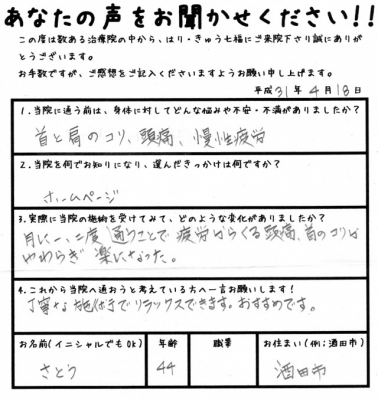 あなたの声をお聞かせください!!
この度は数ある治療院の中から、はり・きゅう七福にご来院下さり誠にありが
とうございます。
お手数ですが、ご感想をご記入くださいますようお願い申し上げます。
平成31年4月18日
1.当院に通う前は、身体に対してどんな悩みや不安・不満がありましたか?
首と肩のコリ、頭痛、慢性疲労
2.当院を何でお知りになり、選んだきっかけは何ですか?
ホームページ
3.実際に当院の施術を受けてみて、どのような変化がありましたか?
月に一、二度 通うことで 疲労からくる頭痛、首のコリは
やわらぎ 楽になった。
4.これから当院へ通おうと考えている方へ一言お願いします!
丁寧な施術でリラックスできます。おすすめです。
お名前(イニシャルでもOK) 年齢 職業 お住まい(例;酒田市)
さとう 44 酒田市